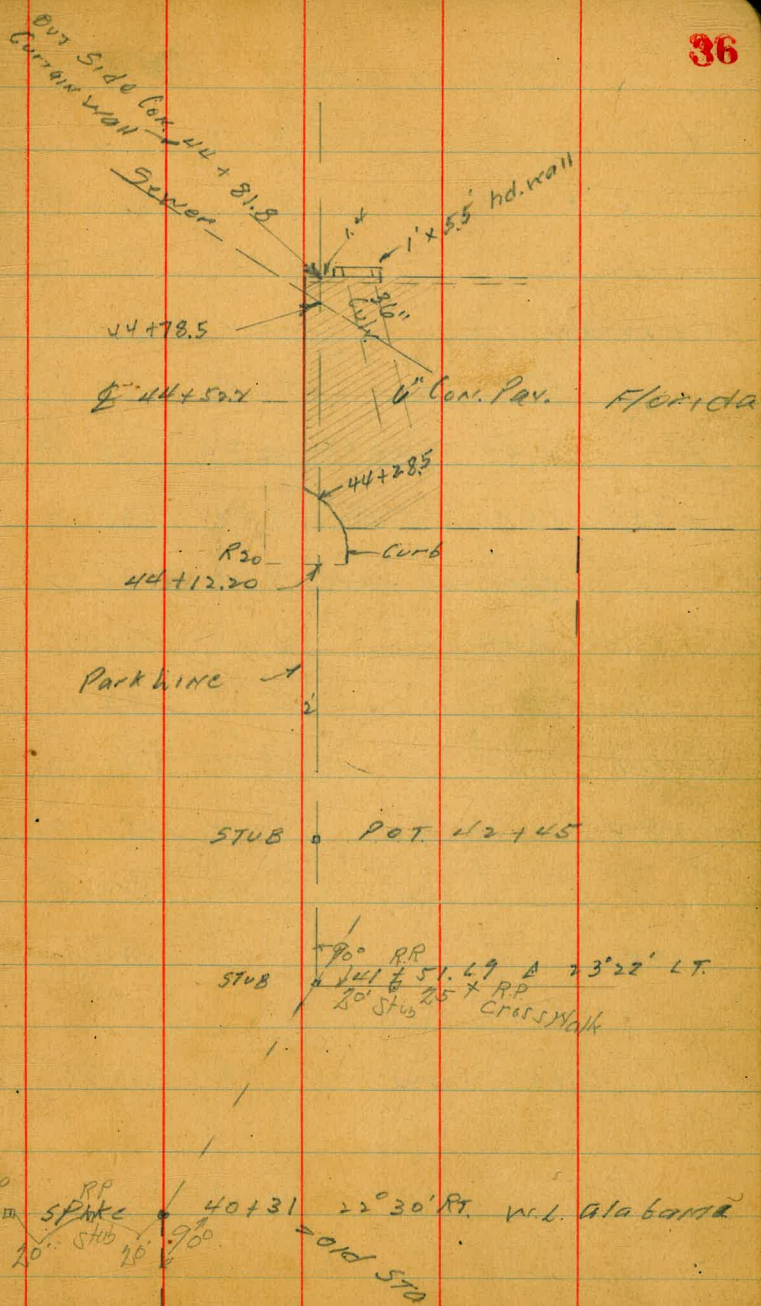 36
Out Side Cor. 44 + 81.8
Curtain Wall
Sewer
1.4
1' x 5.5' hd. wall
36"
Culv.
44+78.5
℄ 44+52.2
6" Con. Pav.
Florida
44+28.5
R20
Curb
44+12.20
Park Line
2'
STUB P.O.T. 42+45
90° R.P.
STUB 41 + 51.69 Δ 23°22' LT.
20' Stub 25 x R.P.
Cross Walk
R.P.
Spike 40+31 22°30' RT. W.L. Alabama
Stub
20' 20' 90°
= Old Sta